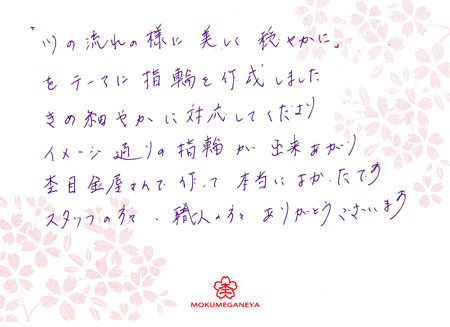 「川の流れの様に 美しく 穏やかに」
をテーマに 指輪を作成しました
きめ細やかに対応してくださり
イメージ通りの指輪が 出来あがり
杢目金屋さんで作って 本当によかったです
スタッフの方々、職人の方々 ありがとうございます
杢
MOKUMEGANEYA